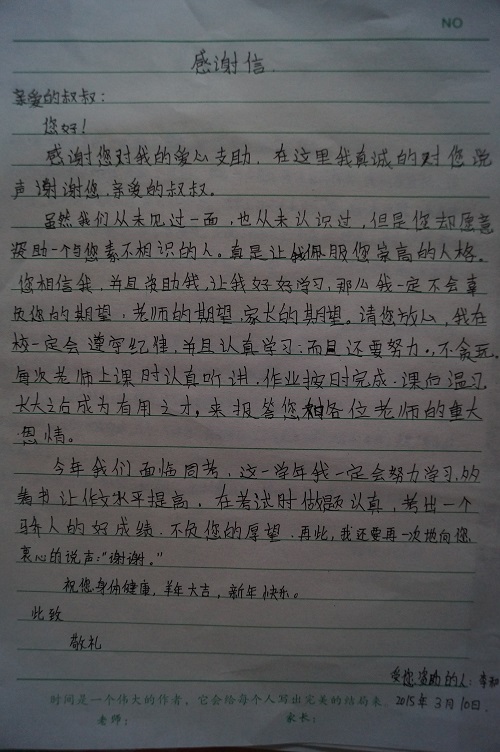 NO
感谢信.
亲爱的叔叔:
您好!
感谢您对我的爱心支助,在这里我真诚的对您说
声谢谢您,亲爱的叔叔。
虽然我们从未见过一面,也从未认识过,但是您却愿意
资助一个与您素不相识的人。真是让我佩服您崇高的人格。
您相信我,并且资助我,让我好好学习,那么我一定不会辜
负您的期望,老师的期望,家长的期望。请您放心,我在
校一定会遵守纪律,并且认真学习;而且还要努力,不贪玩。
每次老师上课时认真听讲,作业按时完成,课后温习,
长大之后成为有用之才,来报答您和各位老师的重大
恩情。
今年我们面临周考,这一学年我一定会努力学习,多
看书让作文水平提高,在考试时做题认真,考出一个
骄人的好成绩,不负您的厚望,再此,我还要再一次地向您
衷心的说声:“谢谢。”
祝您身体健康,羊年大吉,新年快乐。
此致
敬礼
受您资助的人:李
2015年3月10日.
时间是一个伟大的作者,它会给每个人写出完美的结局来。
老师: 家长: